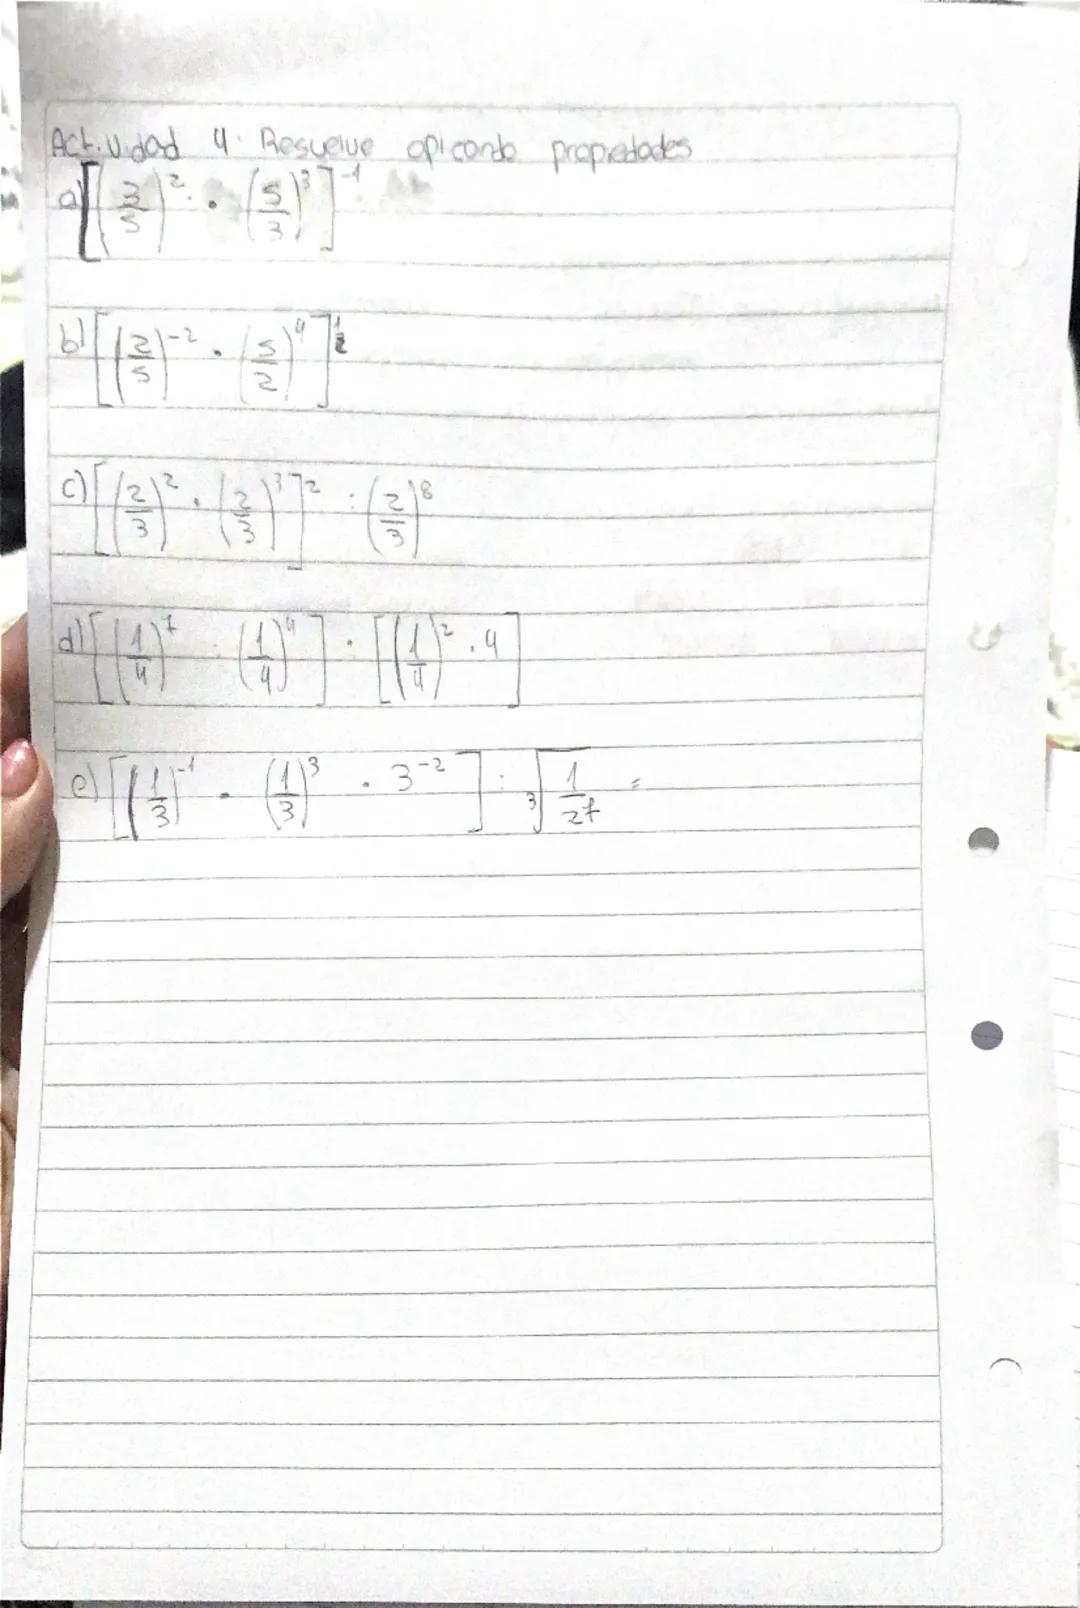 Actividad 4: Resuelve aplicando propiedades
a) [(3/5)² · (5/3)³]⁻¹
b) [(2/5)⁻² · (5/2)⁴]^½
c) [(2/3)² · (2/3)³]² : (2/3)⁸
d) [(1/4)⁷ : (1/4)⁴] : [(1/4)² · 4]
e) [(1/3)⁻¹ · (1/3)³ · 3⁻²] : ³√(1/27) =